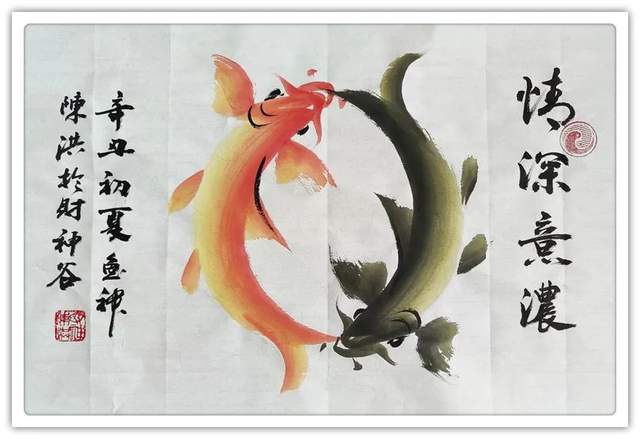 情深意濃
辛丑初夏魚神
陳洪於財神谷